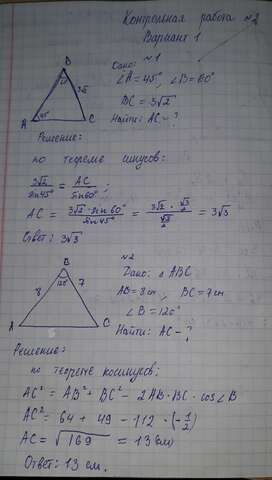 Контрольная работа №2
Вариант 1
№1
Дано:
∠A = 45°, ∠B = 60°
BC = 3√2
Найти: AC - ?
B
60°
3√2
45°
A C
Решение:
по теореме синусов:
3√2/sin45° = AC/sin60° ;
AC = 3√2 · sin60°/sin45° = (3√2 · √3/2)/(√2/2) = 3√3
Ответ: 3√3
№2
B
120°
8 7
A C
Дано: △ABC
AB = 8 см, BC = 7 см
∠B = 120°
Найти: AC - ?
Решение:
по теореме косинусов:
AC² = AB² + BC² - 2AB·BC·cos∠B
AC² = 64 + 49 - 112·(-1/2)
AC = √169 = 13 (см)
Ответ: 13 см.